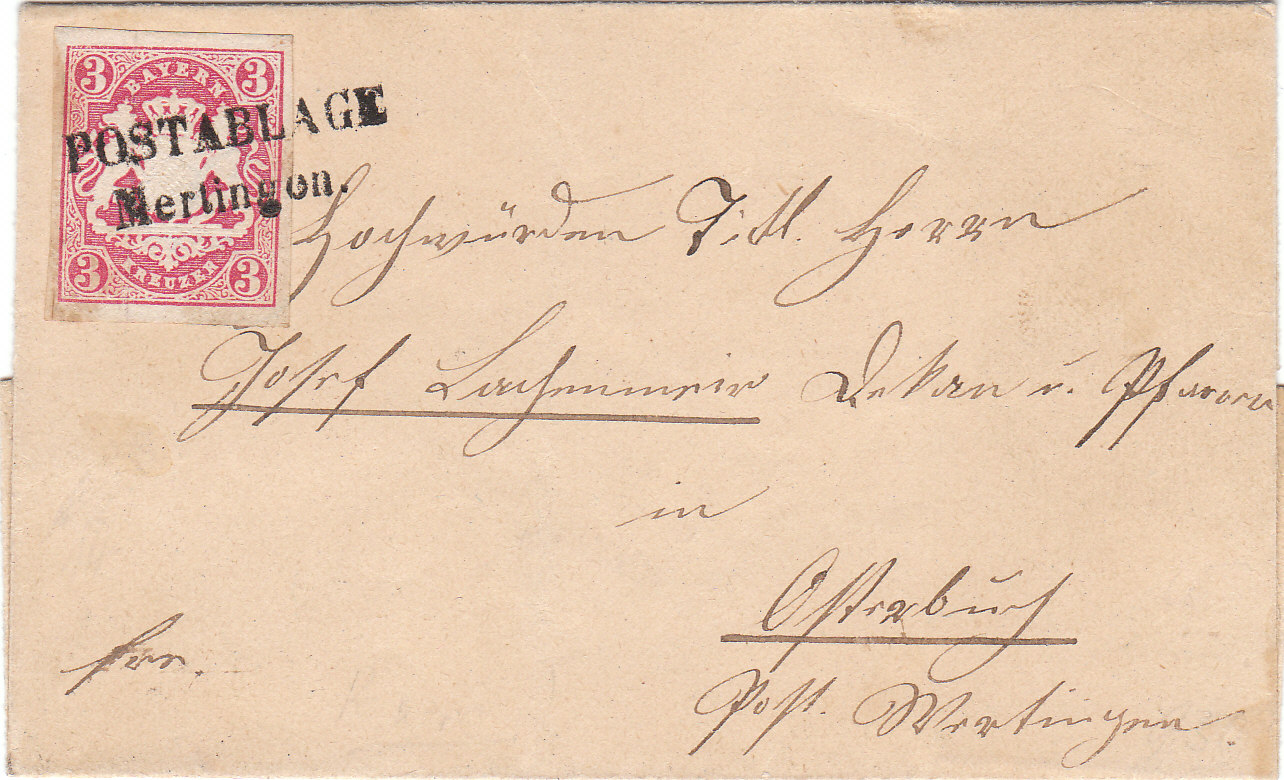 3 BAYERN 3
POSTABLAGE
Mertingen.
3 KREUZER 3
Hochwürden Titl. Herrn
Josef Lachenmeir Dekan u. Pfarrer
in
Osterbuch
fro.
Post. Wertingen